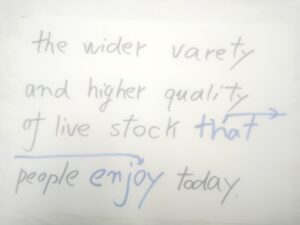 the wider varety
and higher quality
of live stock that
people enjoy today.